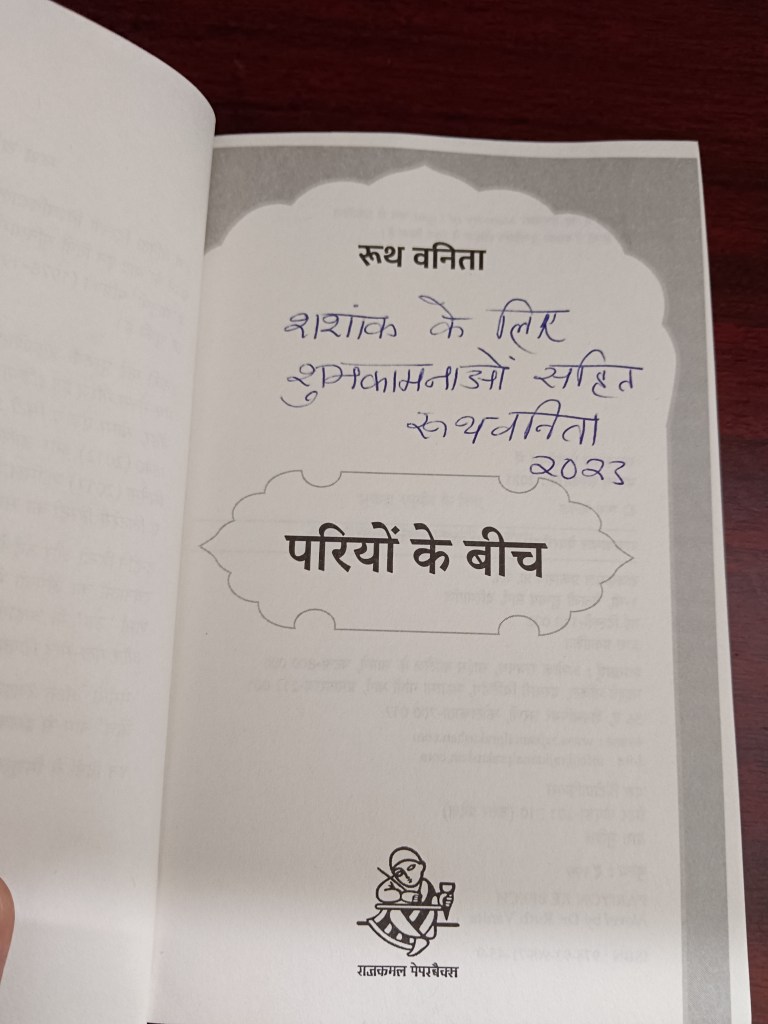 रूथ वनिता
शशांक के लिए
शुभकामनाओं सहित
रूथ वनिता
२०२३
परियों के बीच
राजकमल पेपरबैक्स